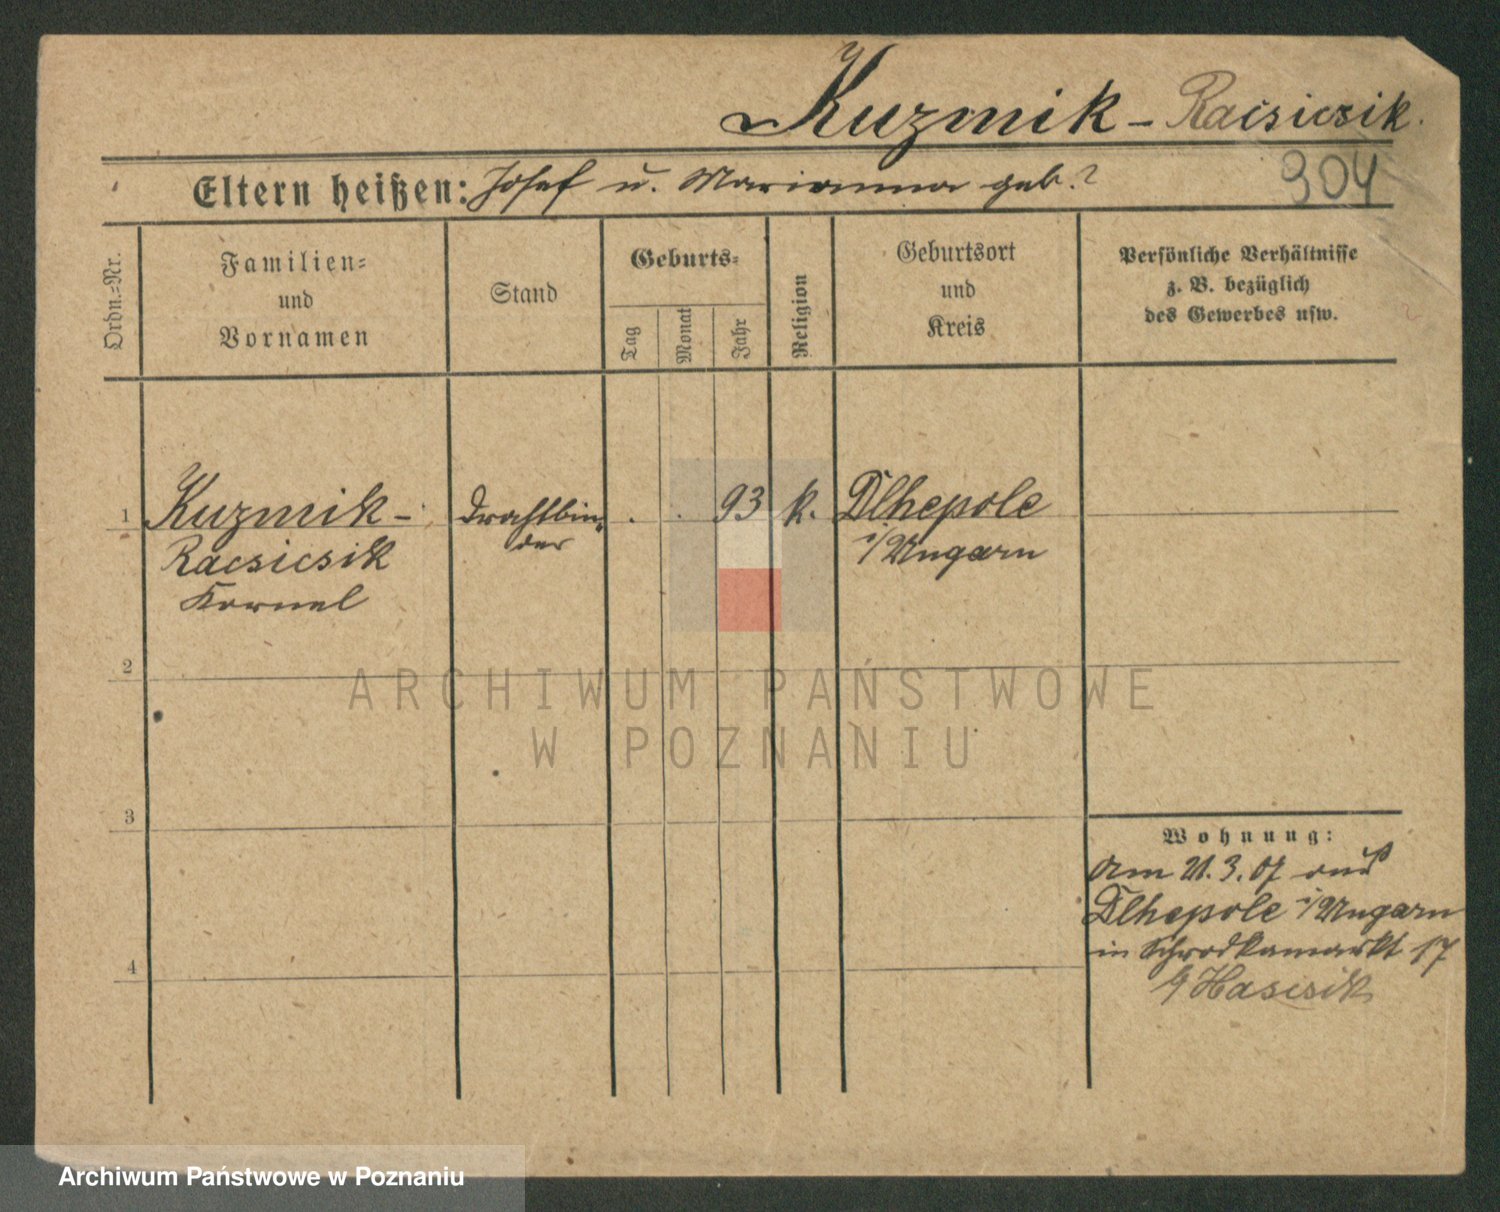 Kuzmik - Racsicsik.
Eltern heißen: Josef u. Marianna geb. ?
304
Ordn.-Nr.
Familien- und Vornamen
Stand
Geburts-
Tag
Monat
Jahr
Religion
Geburtsort und Kreis
Persönliche Verhältnisse
z. B. bezüglich
des Gewerbes usw.
1 Kuzmik - Drahtbin- . . 93 k. Dlhepole
Racsicsik der i/Ungarn
Kornel
2
3
4
Wohnung:
Am 21.3.07 aus
Dlhepole i/Ungarn
in Schrodkamarkt 17
b/
ARCHIWUM PAŃSTWOWE
W POZNANIU
Archiwum Państwowe w Poznaniu